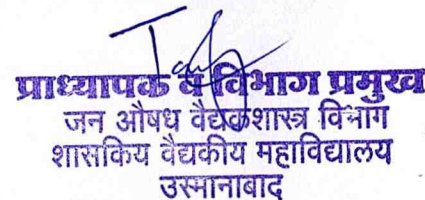 प्राध्यापक व विभाग प्रमुख
जन औषध वैद्यकशास्त्र विभाग
शासकिय वैद्यकीय महाविद्यालय
उस्मानाबाद